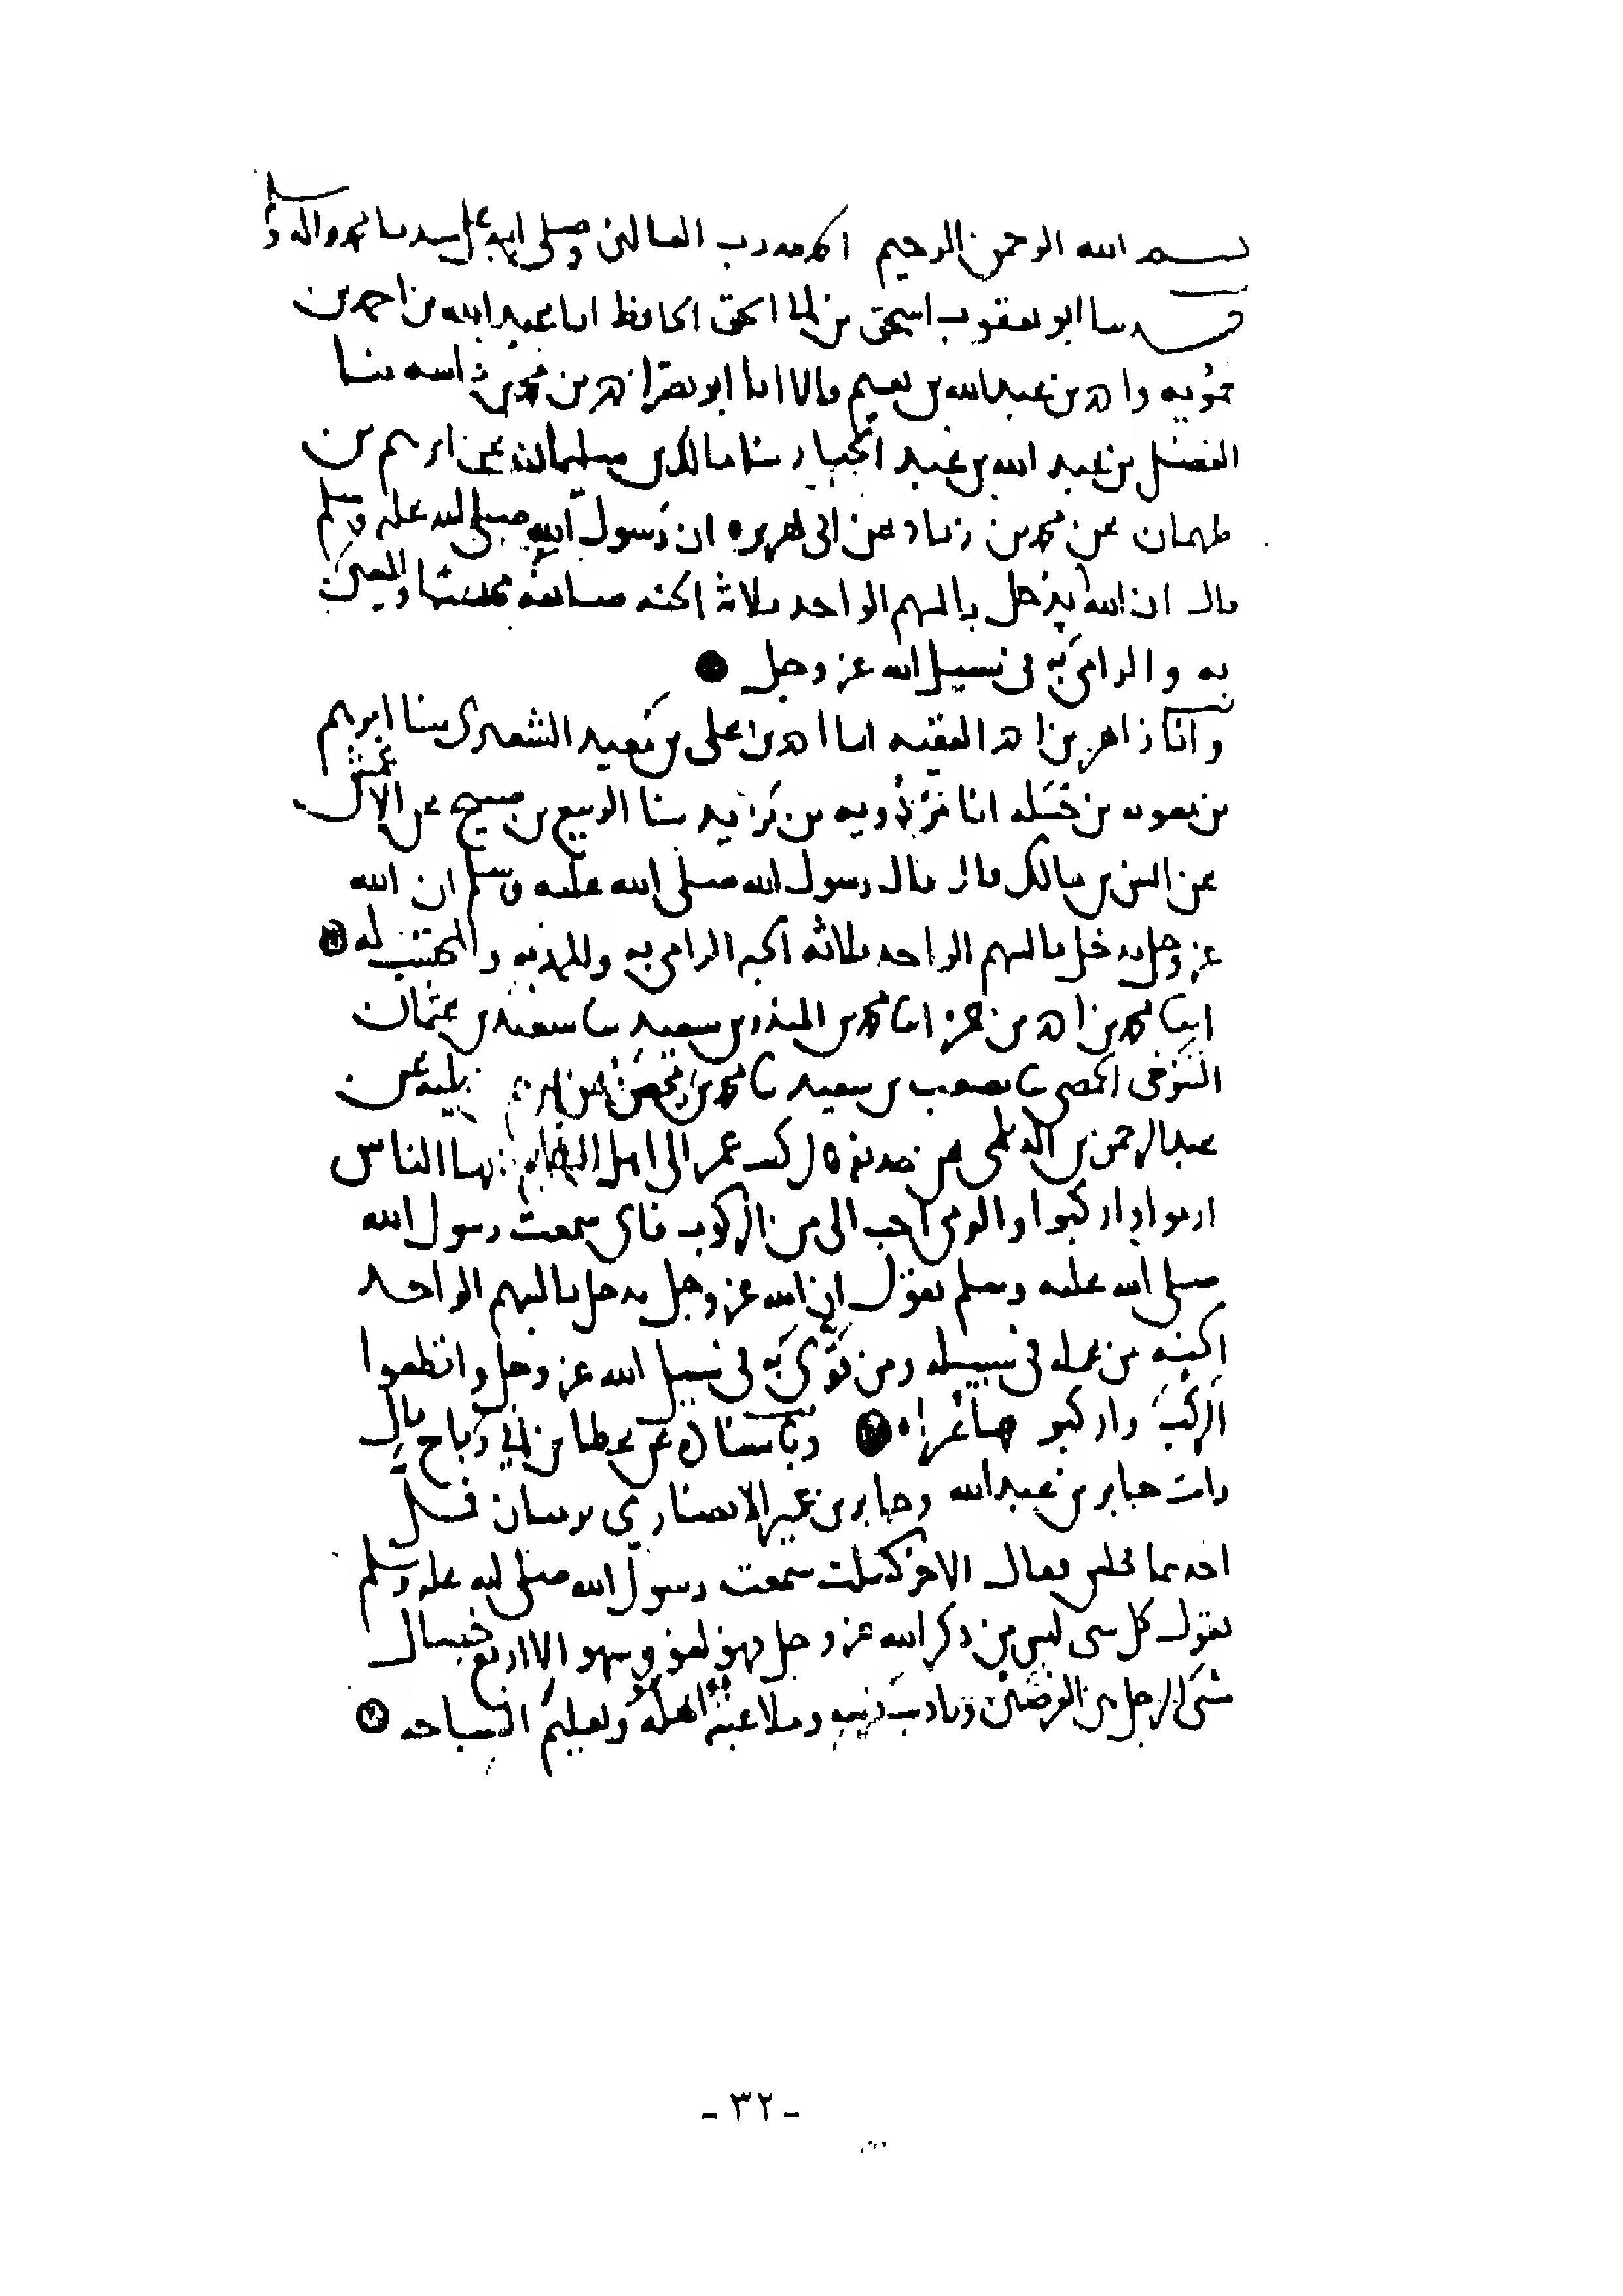 بسم الله الرحمن الرحيم الحمد لله رب العالمين وصلى الله على سيدنا محمد وآله وسلم
حدثنا ابو يعقوب اسحق بن ابي اسحق الحافظ انا عبد الله بن احمد بن
حمويه واحمد بن عبد الله بن نعيم قالا انا ابو نصر احمد بن محمد بن ثنا
الفضل بن عبد الله بن عبد الجبار ثنا مالك بن سليمان عن ابرهيم بن
طهمان عن محمد بن زياد عن ابى هريره ان رسول الله صلى الله عليه وسلم
قال ان الله يدخل بالسهم الواحد ثلاثة الجنه صانعه محتسبا والمعين
به والرامي به في سبيل الله عز وجل
وانا زاهر بن احمد الفقيه انا احمد بن على بن معبد الشعيرى ثنا ابرهيم
بن انا بن ثنا الربيع بن صبيح عن الاعمش
عن انس بن مالك قال قال رسول الله صلى الله عليه وسلم ان الله
عز وجل يدخل بالسهم الواحد ثلاثه الجنه الرامى به والممد به والمحتسب له
انبا محمد بن احمد بن حمزه انا محمد بن المنذر بن سعيد ثنا سعيد بن عثمان
التنوخى الحمصى ثنا مصعب بن سعيد ثنا محمد بن محصن عن ابرهيم عن
عبد الرحمن بن الديلمى عن حذيفه قال كتب عمر الى اهل الشام ايها الناس
ارموا واركبوا والرمى احب الى من الركوب فانى سمعت رسول الله
صلى الله عليه وسلم يقول ان الله عز وجل يدخل بالسهم الواحد
الجنه من عمله فى سبيله ومن قوى به فى سبيل الله عز وجل واقطعوا
الركب واركبوا وباسناده عن عطا بن ابي رباح قال
رايت جابر بن عبد الله وجابر بن عمير الانصاري يرميان فمل
احدهما فجلس فقال الاخر كسلت سمعت رسول الله صلى الله عليه وسلم
يقول كل شى ليس من ذكر الله عز وجل فهو لغو وسهو الا اربع خصال
مشى الرجل بين الغرضين وتاديب فرسه وملاعبته اهله وتعليم السباحه
- ٣٢ -